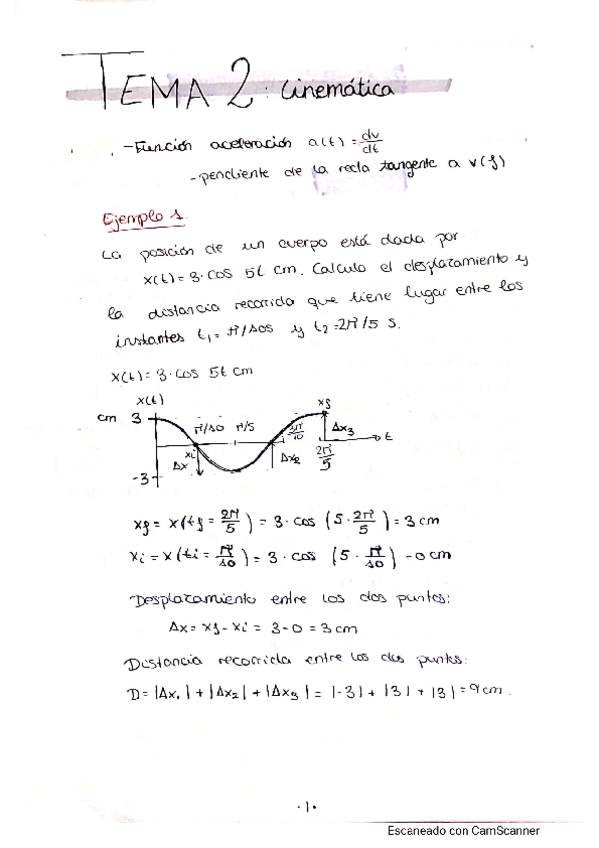 TEMA 2: Cinemática
-Función aceleración a(t) = dv/dt
-pendiente de la recta tangente a v(f)
Ejemplo 1.
La posición de un cuerpo está dada por
x(t) = 3·cos 5t cm. Calcula el desplazamiento y
la distancia recorrida que tiene lugar entre los
instantes t₁ = π/10s y t₂ = 2π/5 s.
x(t) = 3·cos 5t cm
x(t)
cm 3
π/10 π/5 3π/10 2π/5 t
xi xf
Δx Δx₂ Δx₃
-3
xf = x(tf = 2π/5) = 3·cos (5·2π/5) = 3 cm
xi = x(ti = π/10) = 3·cos (5·π/10) = 0 cm
Desplazamiento entre los dos puntos:
Δx = xf - xi = 3 - 0 = 3 cm
Distancia recorrida entre los dos puntos:
D = |Δx₁| + |Δx₂| + |Δx₃| = |-3| + |3| + |3| = 9 cm.
·1·
Escaneado con CamScanner